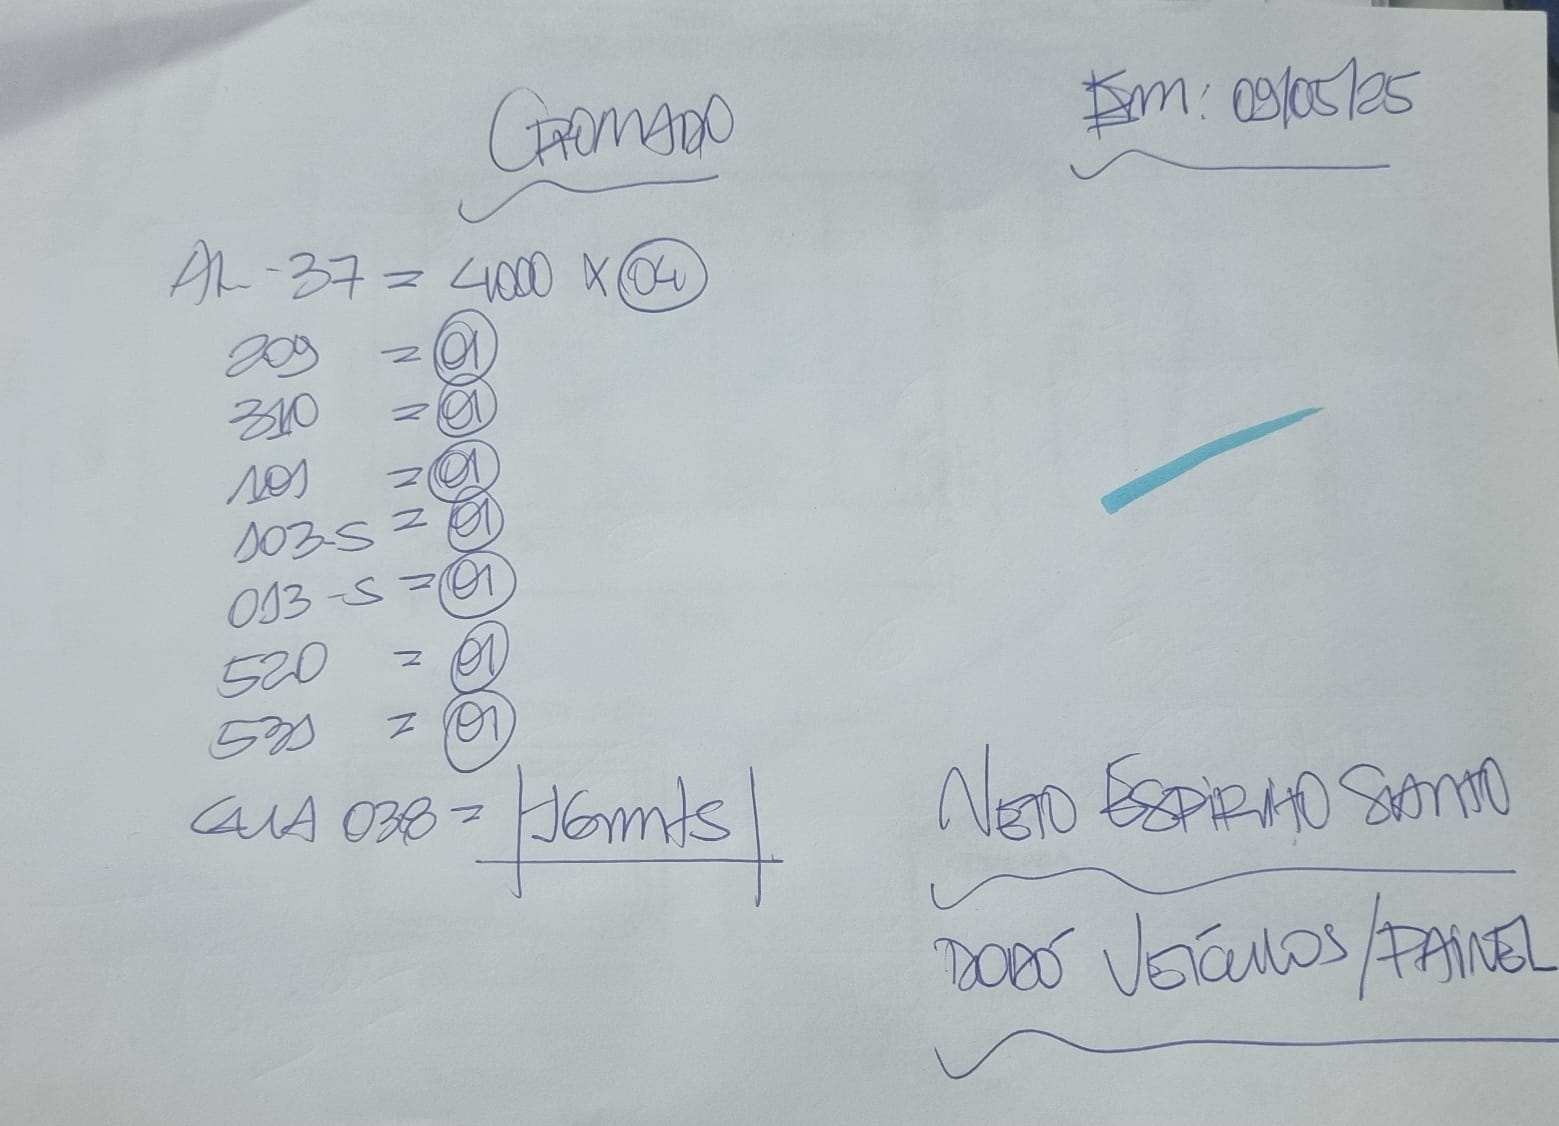 CROMADO
Em: 09/05/25
AL-37 = 4000 x 04
209 = 01
310 = 01
101 = 01
103-S = 01
013-S = 01
520 = 01
531 = 01
GUIA 038 = 16mts
NETO ESPIRITO SANTO
DODÓ VEÍCULOS/PAINEL